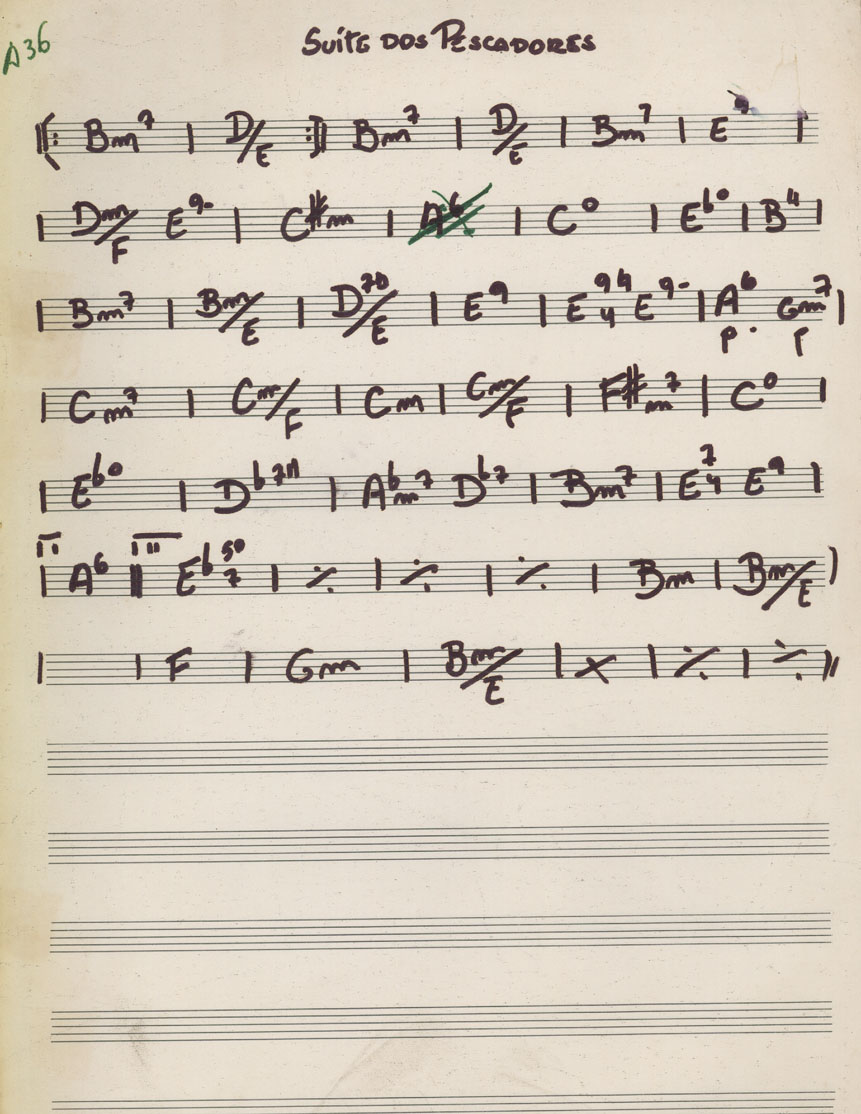 A36
SUÍTE DOS PESCADORES
Bm7 D/E Bm7 D/E Bm7 E
Dm/F E9- C#m A6 C° Eb° B4
Bm7 Bm/E D7M/E E9 E94 4 E9- A6 Gm7
P. P
Cm7 Cm/F Cm Cm/F F#m7 C°
Eb° Db7M Abm7 Db7 Bm7 E74 E9
I II
A6 Eb7 ٪ ٪ ٪ Bm Bm/E
F Gm Bm/E ٪ ٪